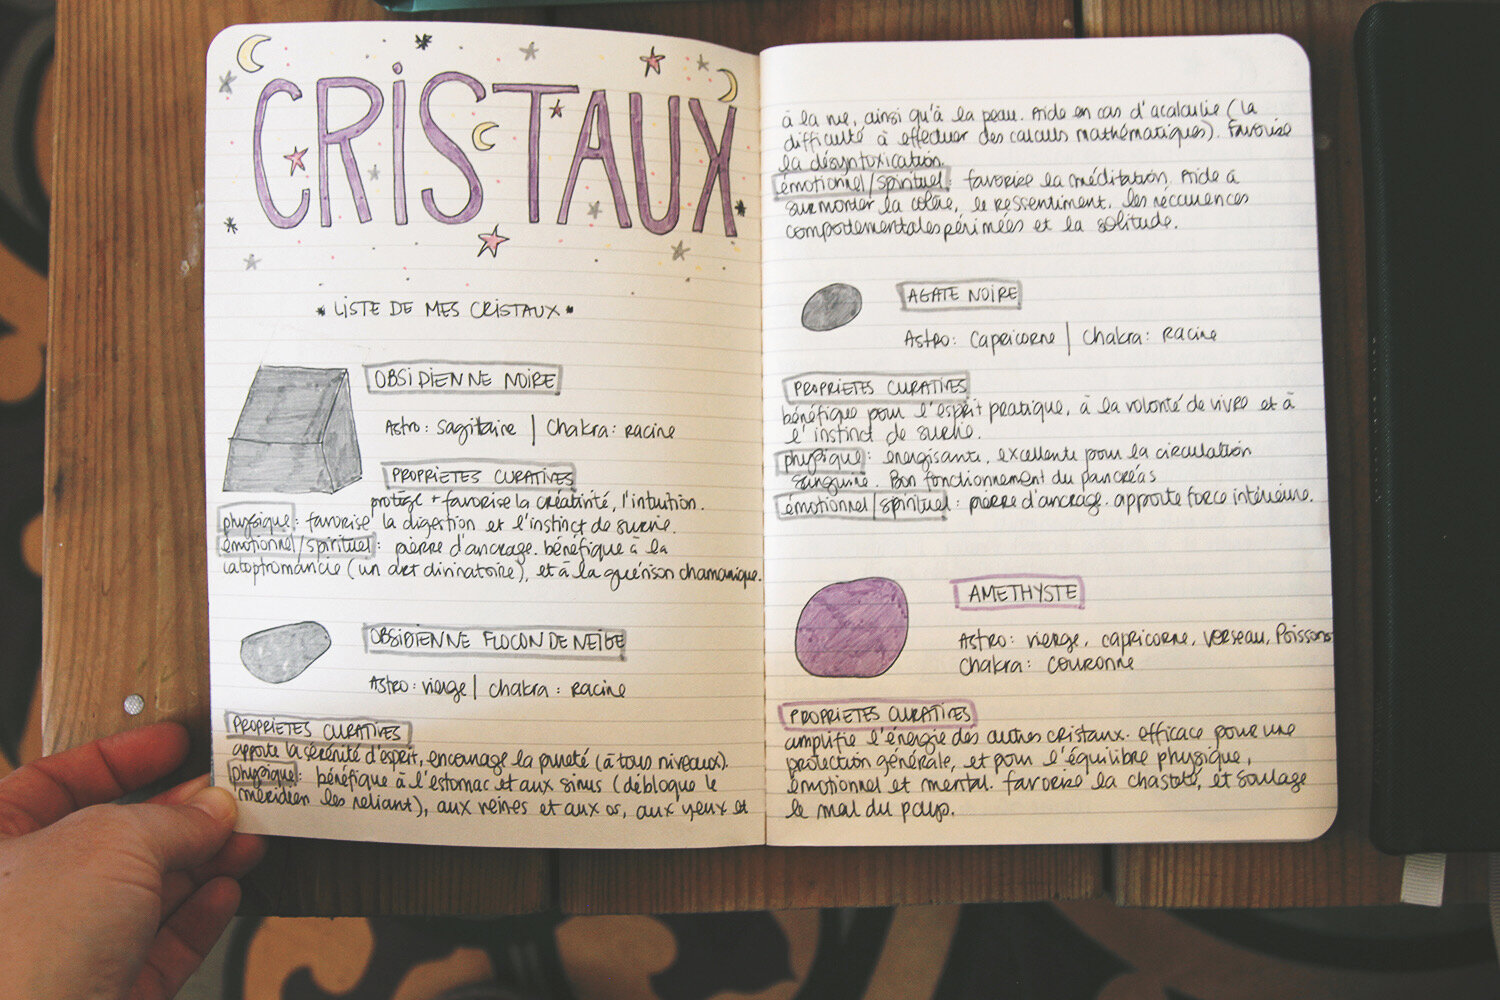 CRISTAUX
* LISTE DE MES CRISTAUX *
OBSIDIENNE NOIRE
Astro : sagittaire | Chakra : racine
PROPRIETES CURATIVES
protège + favorise la créativité, l'intuition.
physique : favorise la digestion et l'instinct de survie.
émotionnel/spirituel : pierre d'ancrage. bénéfique à la
catoptromancie (un art divinatoire), et à la guérison chamanique.
OBSIDIENNE FLOCON DE NEIGE
Astro : vierge | Chakra : racine
PROPRIETES CURATIVES
apporte la sérénité d'esprit, encourage la pureté (à tous niveaux).
physique : bénéfique à l'estomac et aux sinus (débloque le
méridien les reliant), aux reins et aux os, aux yeux et
à la vue, ainsi qu'à la peau. Aide en cas d'acalculie (la
difficulté à effectuer des calculs mathématiques). Favorise
la désyntoxication.
émotionnel/spirituel : favorise la méditation. Aide à
surmonter la colère, le ressentiment, les récurences
comportementales périmées et la solitude.
AGATE NOIRE
Astro : Capricorne | Chakra : Racine
PROPRIETES CURATIVES
bénéfique pour l'esprit pratique, à la volonté de vivre et à
l'instinct de survie.
physique : énergisante, excellente pour la circulation
sanguine. Bon fonctionnement du pancréas
émotionnel/spirituel : pierre d'ancrage. apporte force intérieure.
AMETHYSTE
Astro : vierge, capricorne, verseau, Poissons
Chakra : couronne
PROPRIETES CURATIVES
amplifie l'énergie des autres cristaux. efficace pour une
protection générale, et pour l'équilibre physique,
émotionnel et mental. favorise la chasteté, et soulage
le mal du pays.